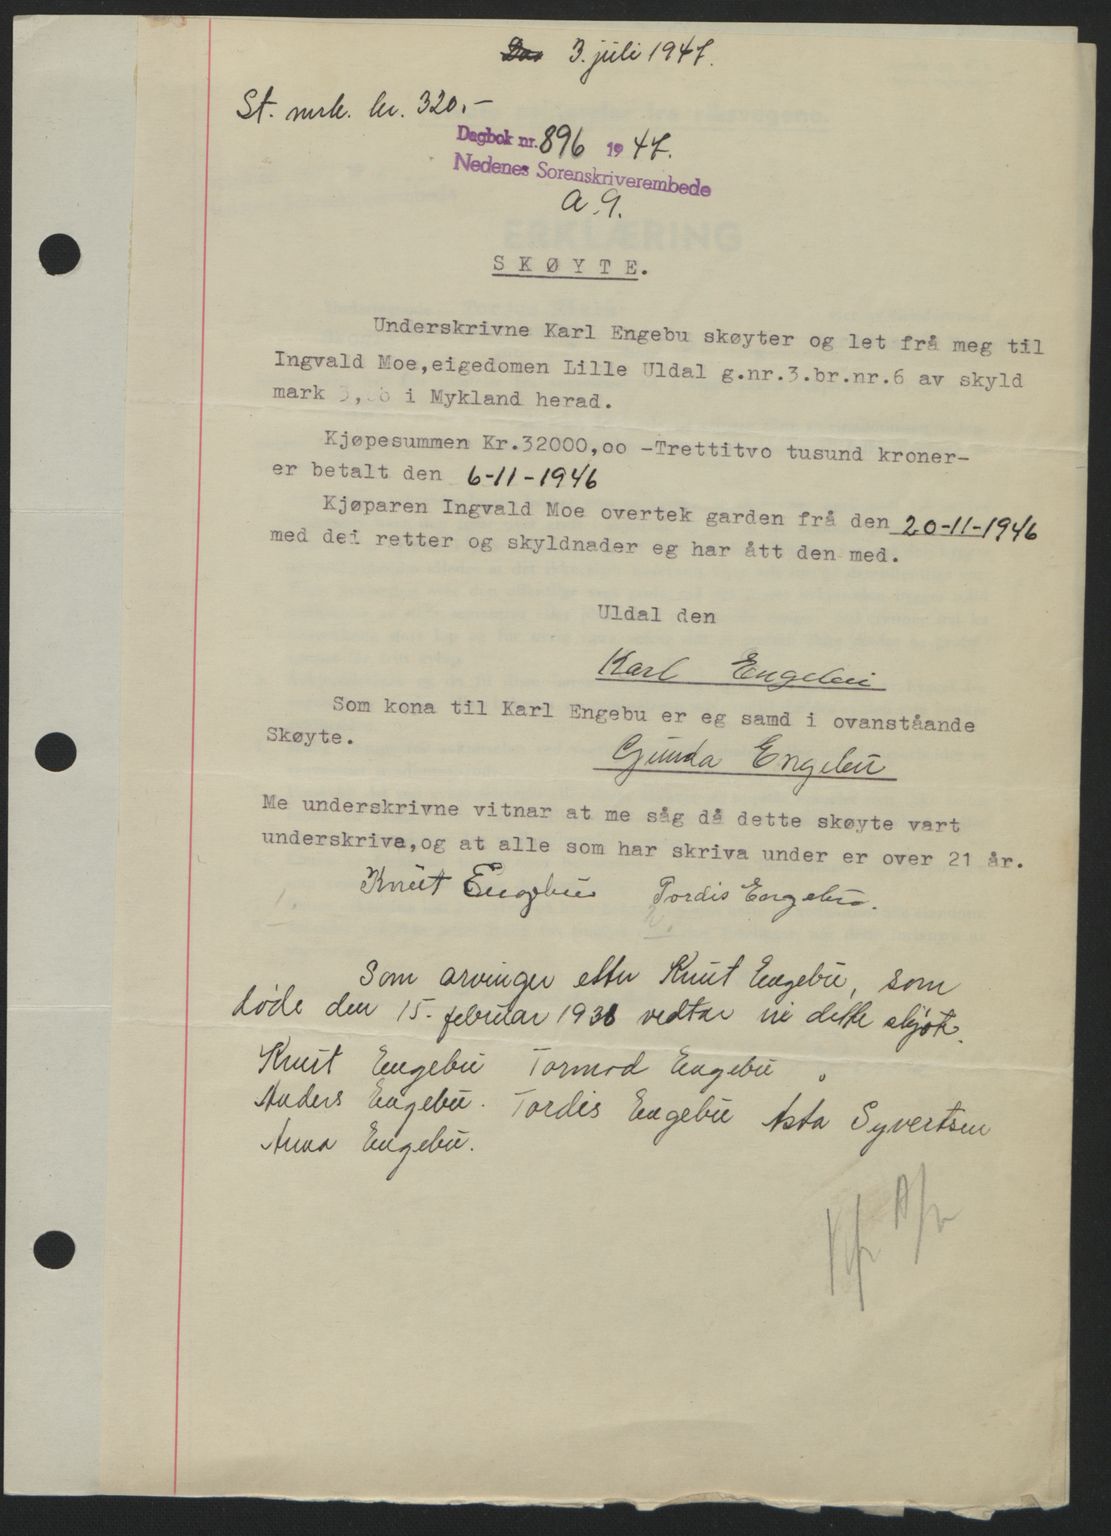 3. juli 1947.
St. mrk. kr. 320.-
Dagbok nr. 896 1947.
Nedenes Sorenskriverembede
a. 9.
ERKLÆRING
SKØYTE.
Underskrivne Karl Engebu skøyter og let frå meg til
Ingvald Moe,eigedomen Lille Uldal g.nr.3.br.nr.6 av skyld
mark i Mykland herad.
Kjøpesummen Kr.32000,oo -Trettitvo tusund kroner-
er betalt den 6-11-1946
Kjøparen Ingvald Moe overtek garden frå den 20-11-1946
med dei retter og skyldnader eg har ått den med.
Uldal den
Karl Engebu
Som kona til Karl Engebu er eg samd i ovanståande
Skøyte.
Gunda Engebu
Me underskrivne vitnar at me såg då dette skøyte vart
underskriva,og at alle som har skriva under er over 21 år.
Knut Engebu Tordis Engebu.
1. 2.
Som arvinger etter Knut Engebu, som
døde den 15. februar 1938 vedtar vi dette skjøte.
Knut Engebu Tormod Engebu
Anders Engebu. Tordis Engebu Asta Syvertsen
Anna Engebu.